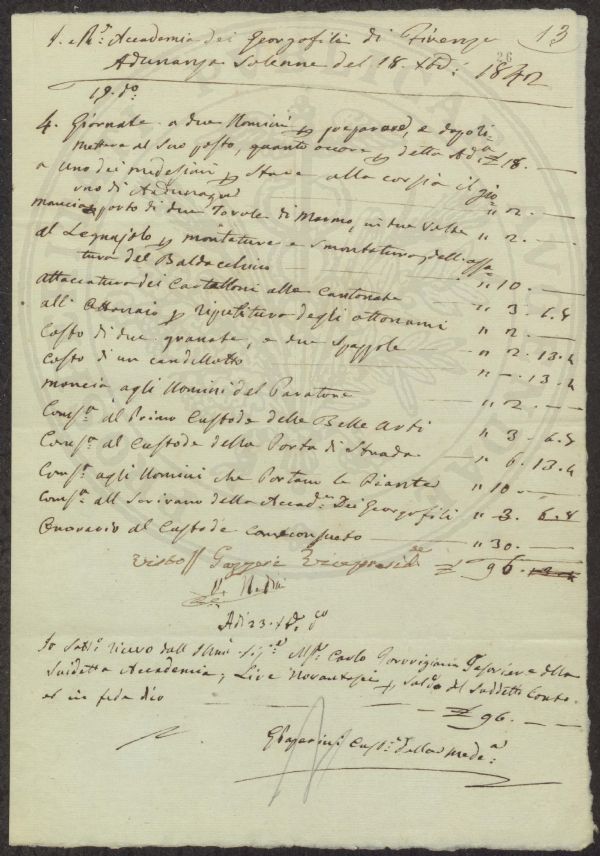 13
26
1. R. Accademia dei Georgofili di Firenze
Adunanza Solenne del 18. Xbre 1842
19. do
4. Giornate a due Uomini p preparare, e
mettere al suo posto, quanto occorre p detta Ada £ 18. —
a uno dei medesimi p stare alla corsia il gio
no di Adunanza " 2. —
mancia porto di due Tavole di Marmo, in due Volte " 2. —
al Legnajolo p montatura e smontatura dell'
tura del Baldacchino " 10. —
attaccatura dei Cartelloni alle Cantonate " 3. 6. 8
all' Ottonaio p ripulitura degli ottonami " 2. —
Costo di due granate, e due Spazzole " 2. 13. 4
Costo di un candellotto " —. 13. 4
mancia agli Uomini del Paratore " 2. —
Consa al Primo Custode delle Belle Arti " 3. 6. 8
Consa al Custode della Porta di Strada " 6. 13. 4
Consa agli Uomini che Portano le Piante " 10. —
Consa all Scrivano della Accad. dei Georgofili " 3. 6. 8
Onorario al Custode come consueto " 30. —
Visto Gazzeri Vicepresid. £ 96.
Adi 23. Xbre do
Io sotto ricevo dall Illmo Sigre Carlo Tesoriere della
Suddetta Accademia, Lire Novantasei p Saldo del Suddetto Conto
et in fede dico £ 96. —
Custe della Meda